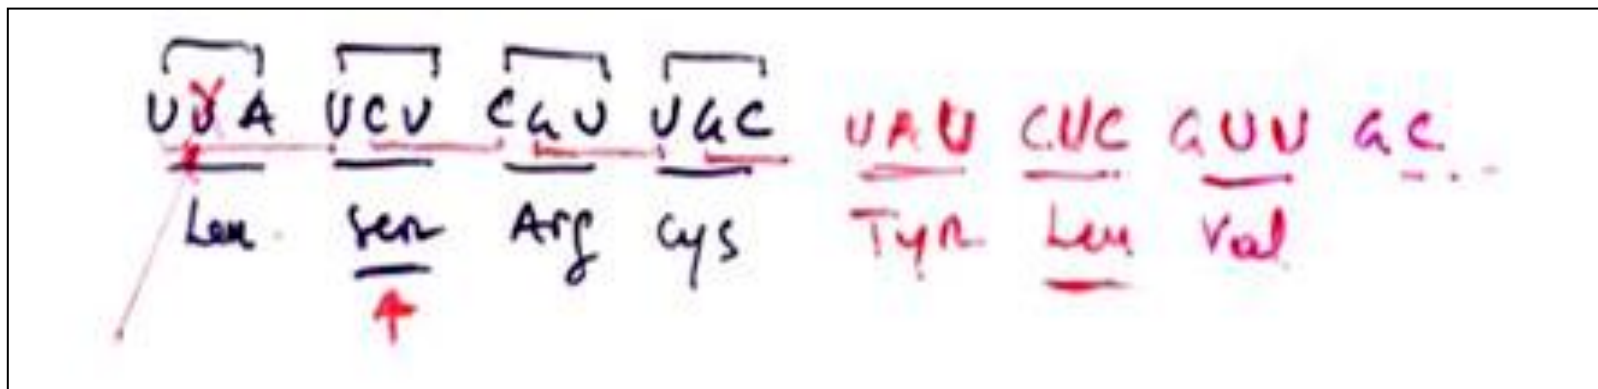 UUA UCU CGU UGC UAU CUC GUU GC...
Leu Ser Arg Cys Tyr Leu Val